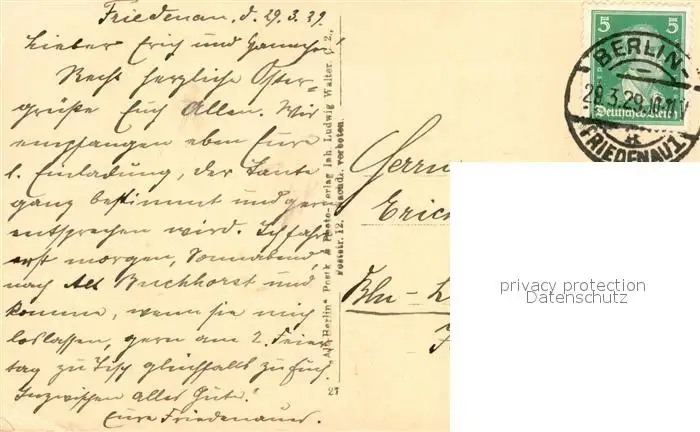 Friedenau, d. 29.3.29.
Lieber Erich und
Recht herzliche Oster-
grüße Euch Allen. Wir
empfangen eben Eure
l. Einladung, der Tante
ganz bestimmt und gern
entsprechen wird. Ich fahre
erst morgen, Sonnabend,
nach Alt Buchhorst und
komme, wenn sie mich
loslassen, gern am 2. Feier-
tag zu Tisch gleichfalls zu Euch.
Inzwischen Alles Gute.
Eure Friedenauer.
"Alt-Berlin" Postk. & Photo-Verlag Inh. Ludwig Walter, C. 2,
Poststr. 12. Nachdr. verboten.
27
5 5
Deutsches Reich
BERLIN-
29.3.29.10-11V
FRIEDENAU 1
Herrn
Erich
Bln-L
privacy protection
Datenschutz